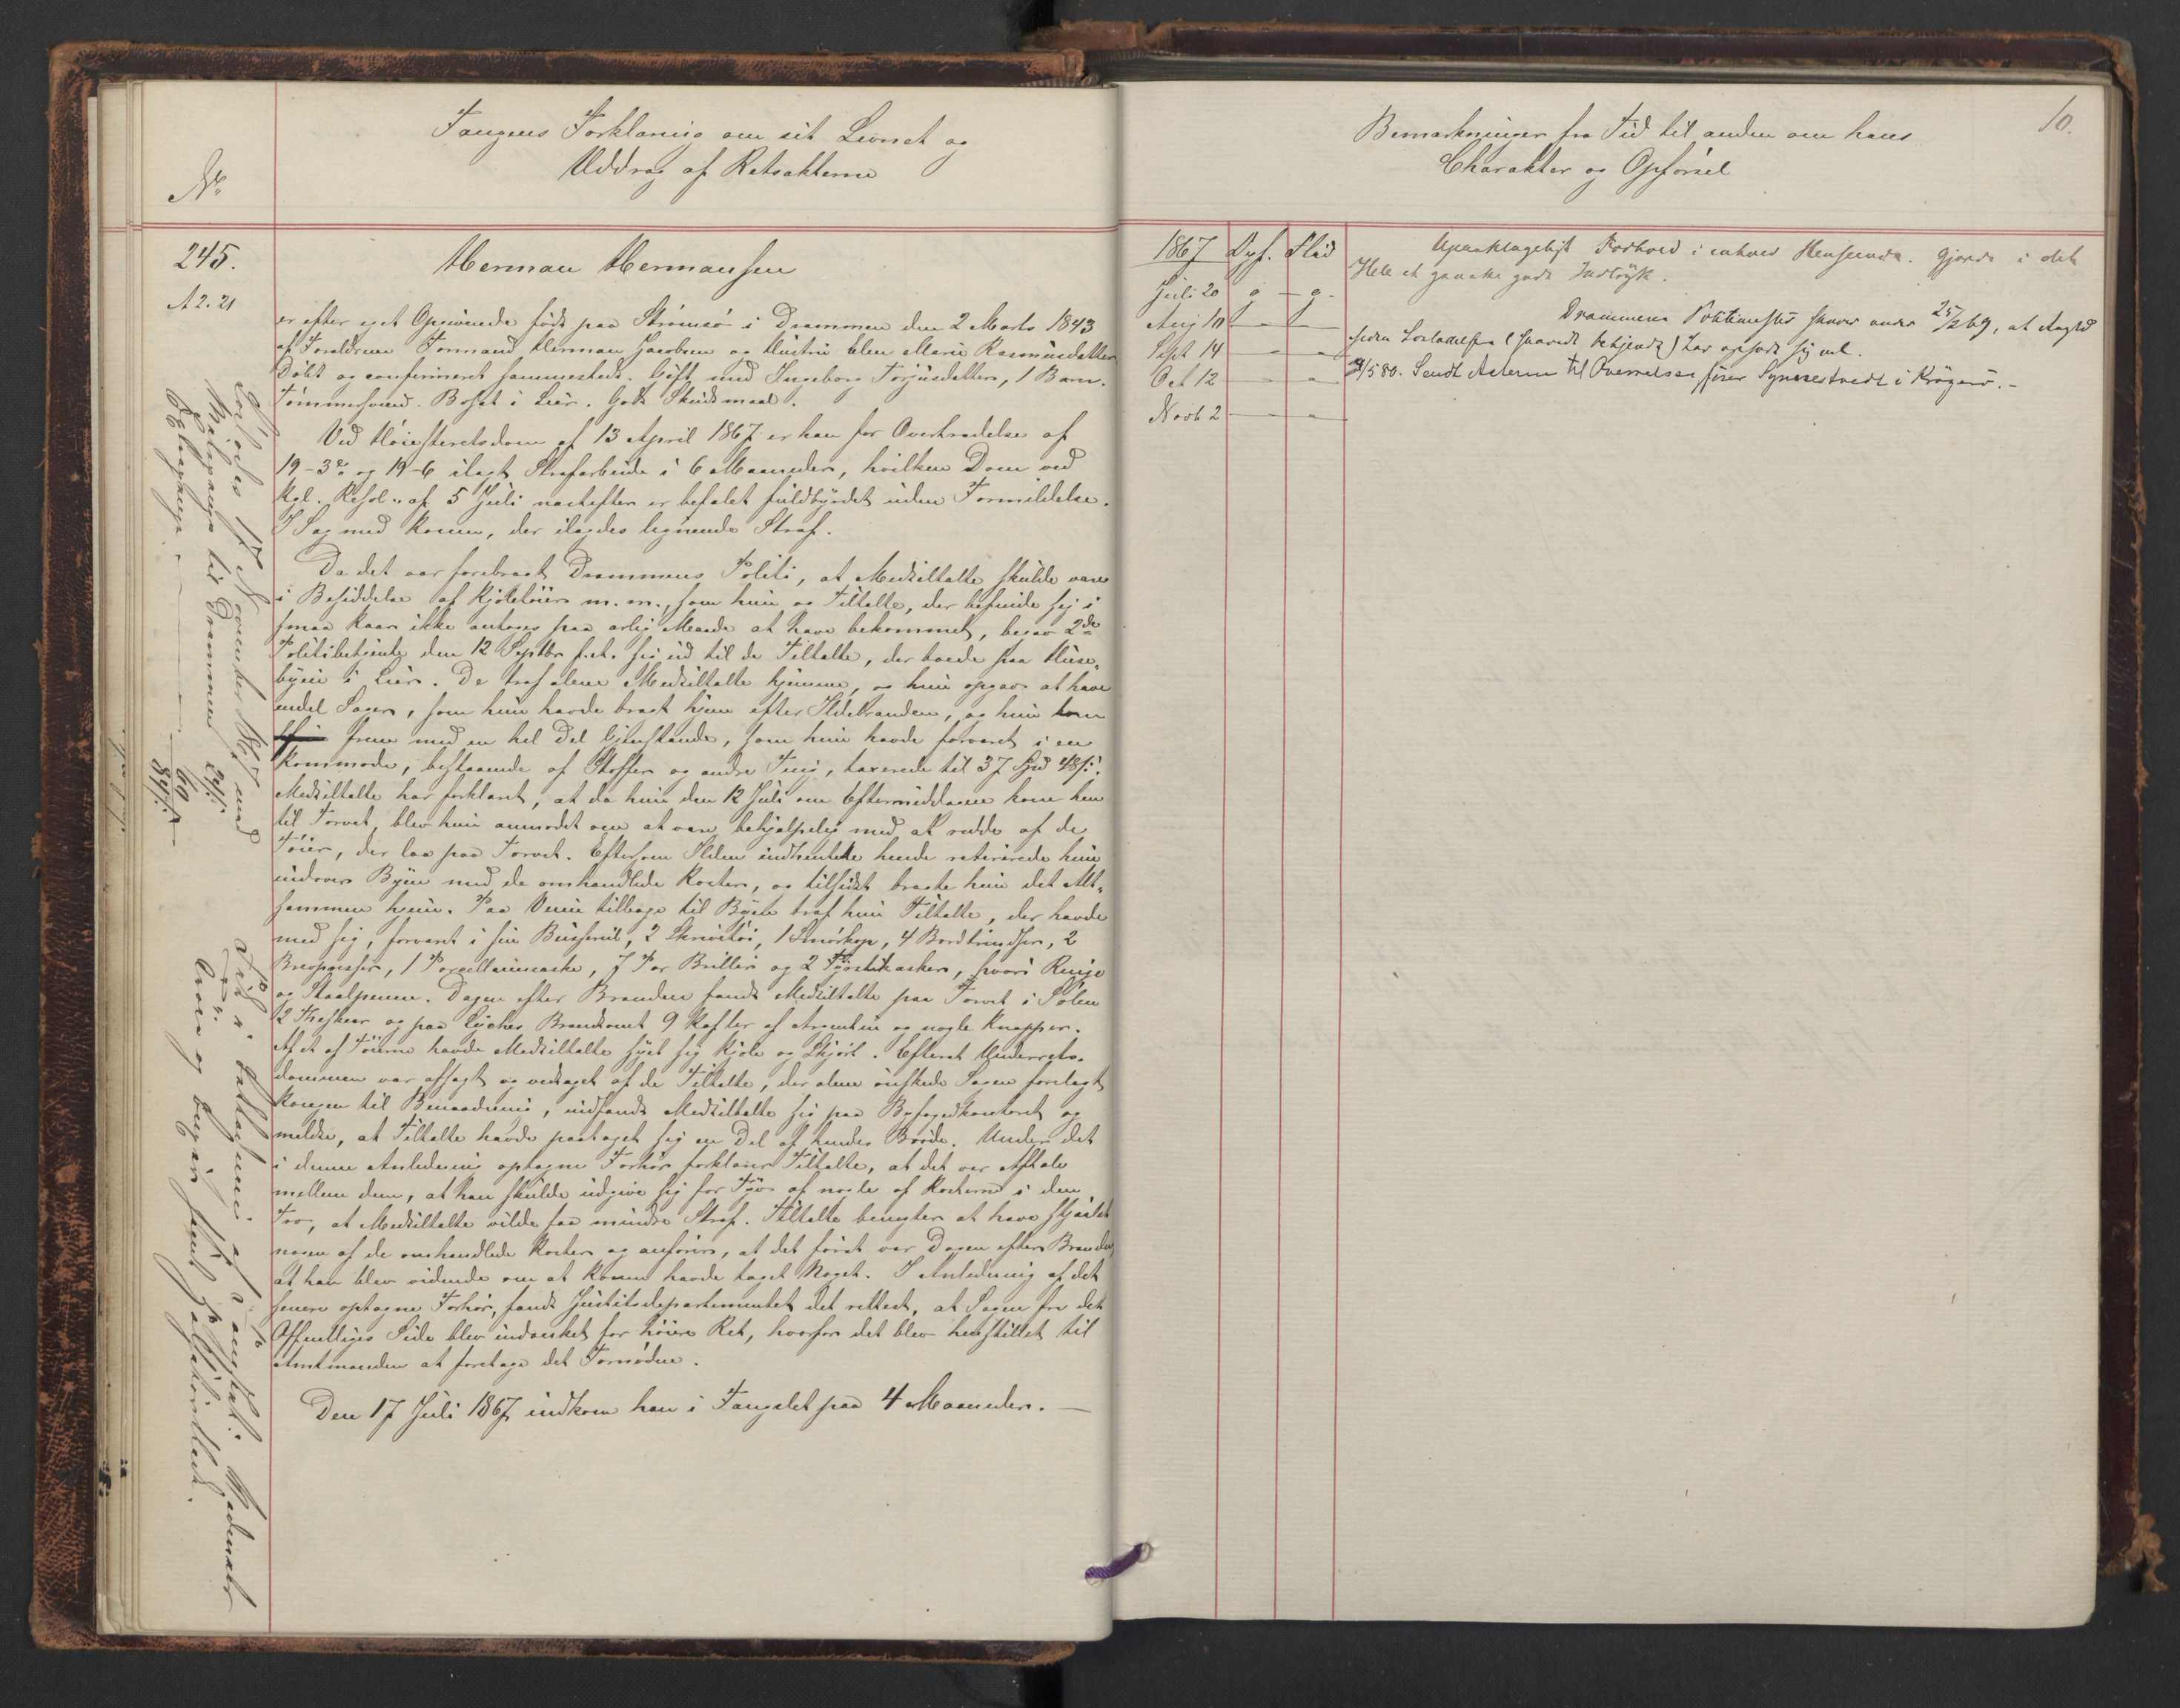 Fangens Forklaring om sit Levnet og
Uddrag af Retsakterne
No
245.
A 2. 21
Herman Hermansen
er efter eget Opgivende født paa Strømsø i Drammen den 2 Marts 1843
af Forældrene Formand Herman Jacobsen og Hustru Elen Marie Rasmusdatter
Døbt og confirmeret sammesteds. Gift med Ingeborg Torjusdatter, 1 Barn.
Tømmermand. Bosat i Lier. Godt Skudsmaal.
Ved Høiesteretsdom af 13 April 1867 er han for Overtrædelse af
19-3 og 19-6 ilagt Strafarbeide i 6 Maaneder, hvilken Dom ved
Kgl. Resol. af 5 Juli næstefter er befalet fuldbyrdet uden Formildelse.
I Sag med Konen, der ilagdes lignende Straf.
Da det var forebragt Drammens Politi, at Medtiltalte skulde være
i Besiddelse af Kjoletøier m. m., som hun og Tiltalte, der befinde sig i
smaa Kaar ikke antages paa ærlig Maade at have bekommet, begav 2de
Politibetjente den 12 Septbr f. A. sig ud til de Tiltalte, der boede paa Huse-
byen i Lier. De traf alene Medtiltalte hjemme, og hun opgav at have
endel Sager, som hun havde bragt hjem efter Ildebranden, og hun kom
frem med en hel Del Gjenstande, som hun havde forvaret i en
Kommode, bestaaende af Stoffer og andre Ting, taxerede til 37 Spd 48 s.
Medtiltalte har forklaret, at da hun den 12 Juli om Eftermiddagen kom hen
til Torvet, blev hun anmodet om at være behjælpelig med at redde af de
Tøier, der laa paa Torvet. Eftersom Ilden indhentede hende retirerede hun
udover Byen med de omhandlede Koster, og tilsidst bragte hun det Alt-
sammen hjem. Paa Veien tilbage til Byen traf hun Tiltalte, der havde
med sig, forvaret i sin Busserul, 2 Skrivetøi, 1 Smørkop, 4 Bordkniver, 2
Brevpresser, 1 Porcellainsæske, 7 Par Briller og 2 Fyrstikæsker, hvori Ringe
og Staalpenne. Dagen efter Branden fandt Medtiltalte paa Torvet i Sølen
12 Theskeer og paa Lyches Brandtomt 9 Gafler af Argentin og nogle Knapper.
Af et af Tøierne havde Medtiltalte syet sig Kjole og Skjørt. Efterat Underrets-
dommen var afsagt og vedtaget af de Tiltalte, der alene ønskede Sagen forelagt
Kongen til Benaadning, indfandt Medtiltalte sig paa Byfogedkontoret og
meldte, at Tiltalte havde paataget sig en Del af hendes Brøde. Under det
i denne Anledning optagne Forhør forklarer Tiltalte, at det var Aftale
mellem dem, at han skulde udgive sig for Tyv af nogle af Kosterne i den
Tro, at Medtiltalte vilde faa mindre Straf. Tiltalte benegter at have stjaalet
nogen af de omhandlede Koster og anfører, at det først var Dagen efter Branden
at han blev vidende om at Konen havde taget Noget. I Anledning af det
senere optagne Forhør, fandt Justitsdepartementet det rettest, at Sagen fra det
Offentliges Side blev indanket for høiere Ret, hvorfor det blev henstillet til
Amtmanden at foretage det Fornødne.
Den 17 Juli 1867 indkom han i Fangslet paa 4 Maaneder.
Løslades 17 November 1867 med
til Drammen 24 s.
69
Bemærkninger fra Tid til anden om hans
Charakter og Opførsel
10.
1867 Opf. Flid
Juli 20 g - g -
Aug 10 - -
Sept 14 - -
Oct 12 - -
Novb 2 - -
Upaaklageligt Forhold i enhver Henseende. Gjorde i det
Hele et ganske godt Indtryk.
Drammens Politimester skriver under 25/2 69, at Angjld
siden Løsladelsen (saavidt bekjendt) har opført sig vel.
/5 80. Sendt Acterne til Overretssagfører Synnestvedt i Kragerø. -